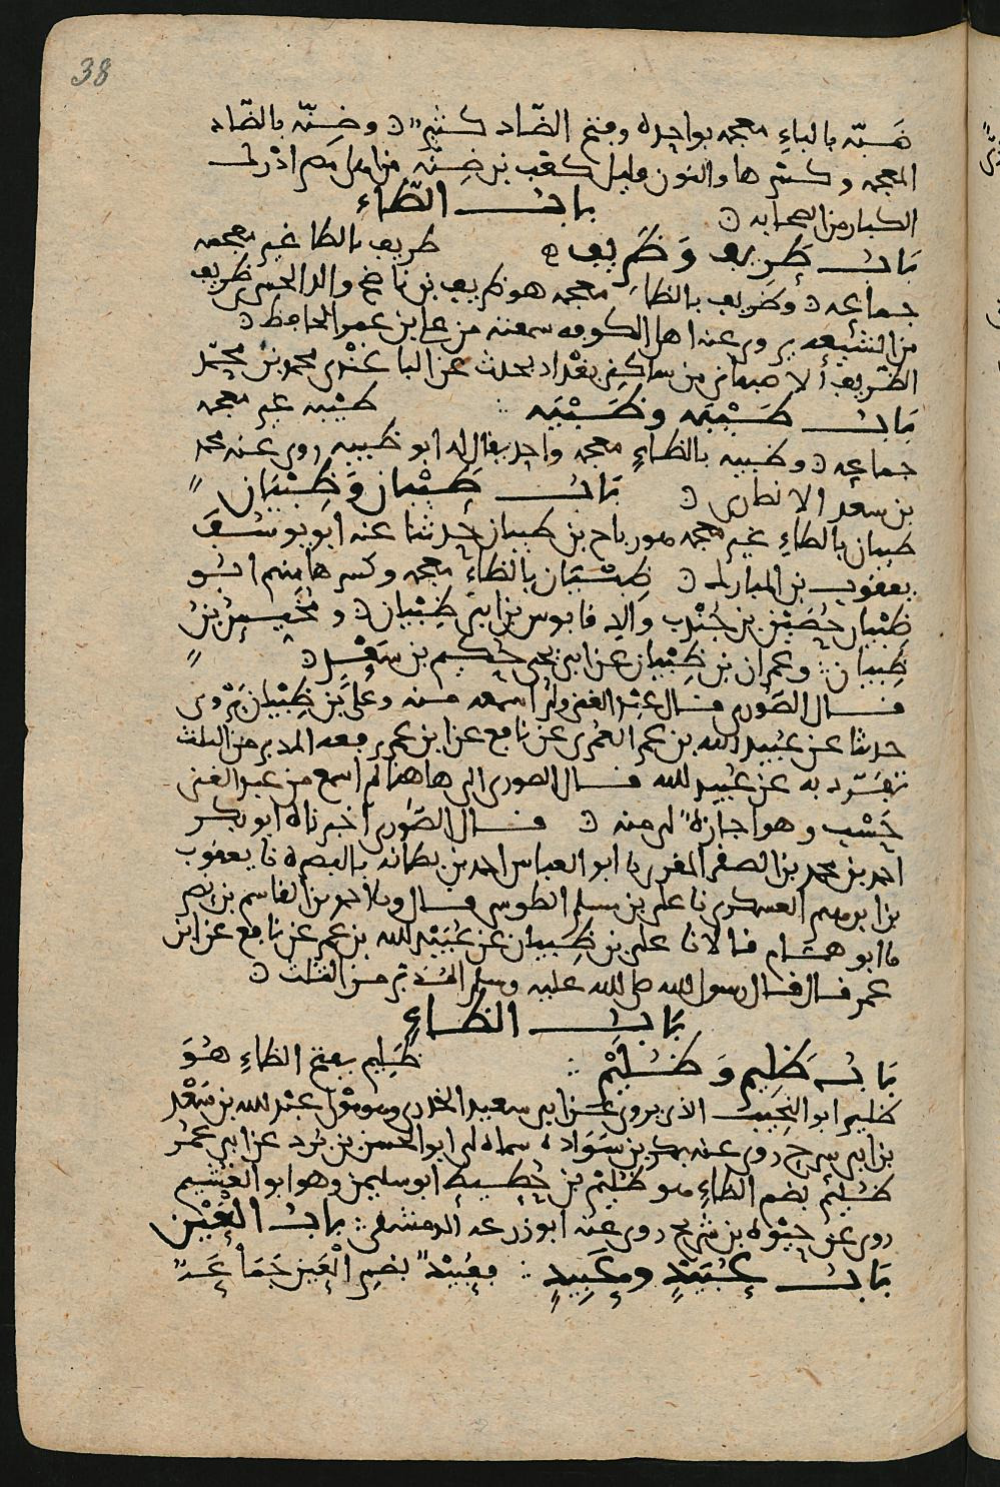 38
ضَبّه بالباءِ معجمه بواحده وفتح الضّاد كثير وضِنّه بالضّاد
المعجمه وكسرها والنون قليل كعب بن ضِنّه من اهل مصر ادرك
الكبار من الصحابه
باب الطّاء
بَاب طَرِيف وَظَرِيف طريف بالطا غير معجمه
جماعه وظريف بالظاء معجمه هو ظريف بن ناصح والد الحسن بن ظريف
من الشيعه يروى عنه اهل الكوفه سمعته من على بن عمر الحافظ
الظريف الاصبهانى من ساكنى بغداد يحدث عن الباغندى محمد بن محمّد
بَاب طَيْبَه وظَبْيَه طيبه غير معجمه
جماعه وظبيه بالظاءِ معجمه واحد يقال له ابو ظبيه روى عنه محمد
بن سعد الانصارى
بَاب طَيْبَان وَظِبْيَان
طيبان بالطاءِ غير معجمه هو رباح بن طيبان حدثنا عنه ابو يوسف
يعقوب بن المبارك ظِبْيَان بالظاء معجمه وكسرها منهم ابو
ظِبْيان حُصَيْن بن جُنْدب والد قابوس بن ابى ظِبْيان و بن
ظِبيان وعمران بن ظِبْيان عن ابى يحيى حُكيم بن سَعْد
قال الصّورى قال عبد الغنى ولم اسمعه منه وعلى بن ظِبْيان يَرْوى
حدثنا عن عبيد الله بن عمر العُمَرى عن نافع عن ابن عمر رفعه المدبر من الثلث
تفرّد به عن عُبيد الله قال الصورى الى هاهنا لم اسمع من عبد الغنى
حَسْب وهو اجازة لى منه قال الصّورى أخبرناه ابو بكر
احمد بن محمد بن الصقر المقرى نا ابو العباس احمد بن بطانه بالبصره نا يعقوب
بن ابرهيم العسكرى نا على بن مسلم الطوسى قال ونا احمد بن القاسم بن نصر
نا ابو هشام قالا نا على بن ظِبيان عن عُبَيْد الله بن عمر عن نافع عن ابن
عمر قال قال رسول الله صلى الله عليه وسلم المدبّر من الثلث
بَاب الظاءِ
بَاب ظَلِيم وَظُلَيْم ظَلِيم بفتح الظاءِ هُوَ
ظليم ابو النجيب الذى يروى عن ابى سعيد الخدرى وهو مَوْلى عبد الله بن سَعْد
بن ابى سرح روى عنه بكر بن سَوَاده سماه لى ابو الحسن بن عن ابى عمر
ظُلَيْم بضم الظاءِ هو ظُلَيْم بن حُطَيط ابو سليمن وهو ابو القسيم
روى عن حَيْوه بن شريح روى عنه ابو زرعه الدمشقى باب العَيْن
بَاب عُبَيْدٍ وعَبِيدٍ فعُبَيْد بضم الْعَين جَمَاعَة